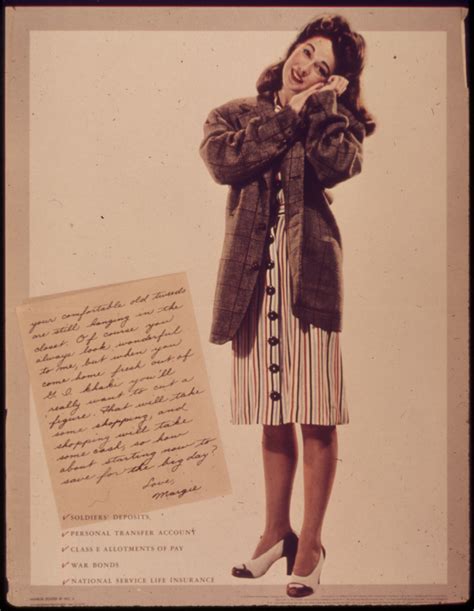 your comfortable old tweeds
are still hanging in the
closet. Of course you
always look wonderful
to me, but when you
come home fresh out of
G I khaki you'll
really want to cut a
figure. That will take
some shopping, and
shopping will take
some cash, so how
about starting now to
save for the big day?
Love,
Margie
✓ SOLDIERS' DEPOSITS
✓ PERSONAL TRANSFER ACCOUNT
✓ CLASS E ALLOTMENTS OF PAY
✓ WAR BONDS
✓ NATIONAL SERVICE LIFE INSURANCE